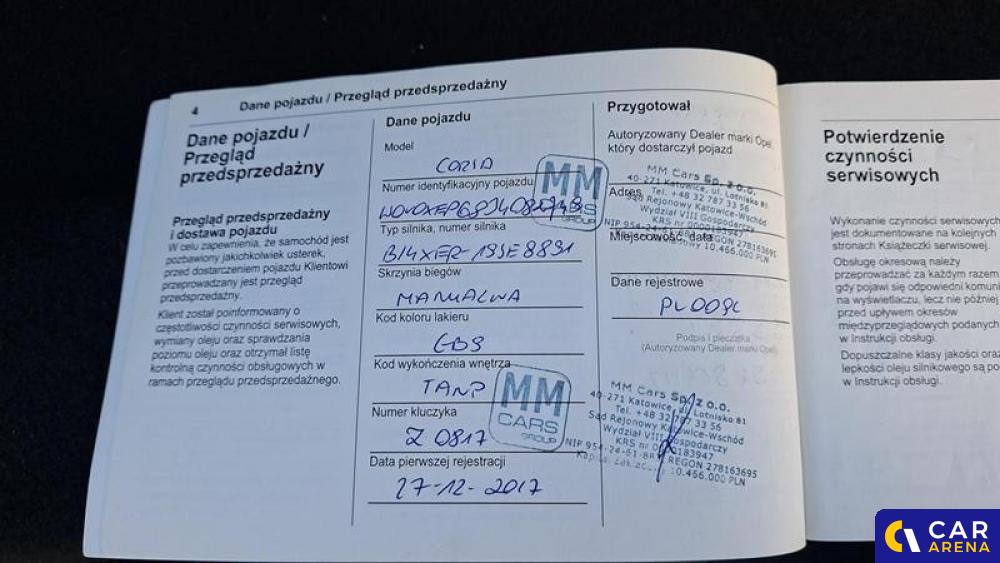 4 Dane pojazdu / Przegląd przedsprzedażny
Dane pojazdu /
Przegląd
przedsprzedażny
Przegląd przedsprzedażny
i dostawa pojazdu
W celu zapewnienia, że samochód jest
pozbawiony jakichkolwiek usterek,
przed dostarczeniem pojazdu Klientowi
przeprowadzany jest przegląd
przedsprzedażny.
Klient został poinformowany o
częstotliwości czynności serwisowych,
wymiany oleju oraz sprawdzania
poziomu oleju oraz otrzymał listę
kontrolną czynności obsługowych w
ramach przeglądu przedsprzedażnego.
Dane pojazdu
Model
CORSA
Numer identyfikacyjny pojazdu
Typ silnika, numer silnika
B14XER-19SE8891
Skrzynia biegów
MANUALNA
Kod koloru lakieru
GB9
Kod wykończenia wnętrza
TANP
Numer kluczyka
Z 0817
Data pierwszej rejestracji
27-12-2017
MM
CARS
GROUP
MM
CARS
GROUP
Przygotował
Autoryzowany Dealer marki Opel,
który dostarczył pojazd
MM Cars Sp. z o.o.
40-271 Katowice, ul. Lotnisko 81
Adres
Tel. +48 32 787 33 56
Sąd Rejonowy Katowice-Wschód
Wydział VIII Gospodarczy
KRS nr 0000183947
NIP 954-24-61-88 REGON 278163695
Miejscowość, data
10.466.000 PLN
Dane rejestrowe
Podpis i pieczątka
(Autoryzowany Dealer marki Opel)
MM Cars Sp. z o.o.
40-271 Katowice, ul. Lotnisko 81
Tel. +48 32 787 33 56
Sąd Rejonowy Katowice-Wschód
Wydział VIII Gospodarczy
KRS nr 0000183947
NIP 954-24-61-88 REGON 278163695
Kapitał zakładowy 10.466.000 PLN
Potwierdzenie
czynności
serwisowych
Wykonanie czynności serwisowych
jest dokumentowane na kolejnych
stronach Książeczki serwisowej.
Obsługę okresową należy
przeprowadzać za każdym razem,
gdy pojawi się odpowiedni komuni
na wyświetlaczu, lecz nie później
przed upływem okresów
międzyprzeglądowych podanych
w Instrukcji obsługi.
Dopuszczalne klasy jakości oraz
lepkości oleju silnikowego są po
w Instrukcji obsługi.
CAR
ARENA